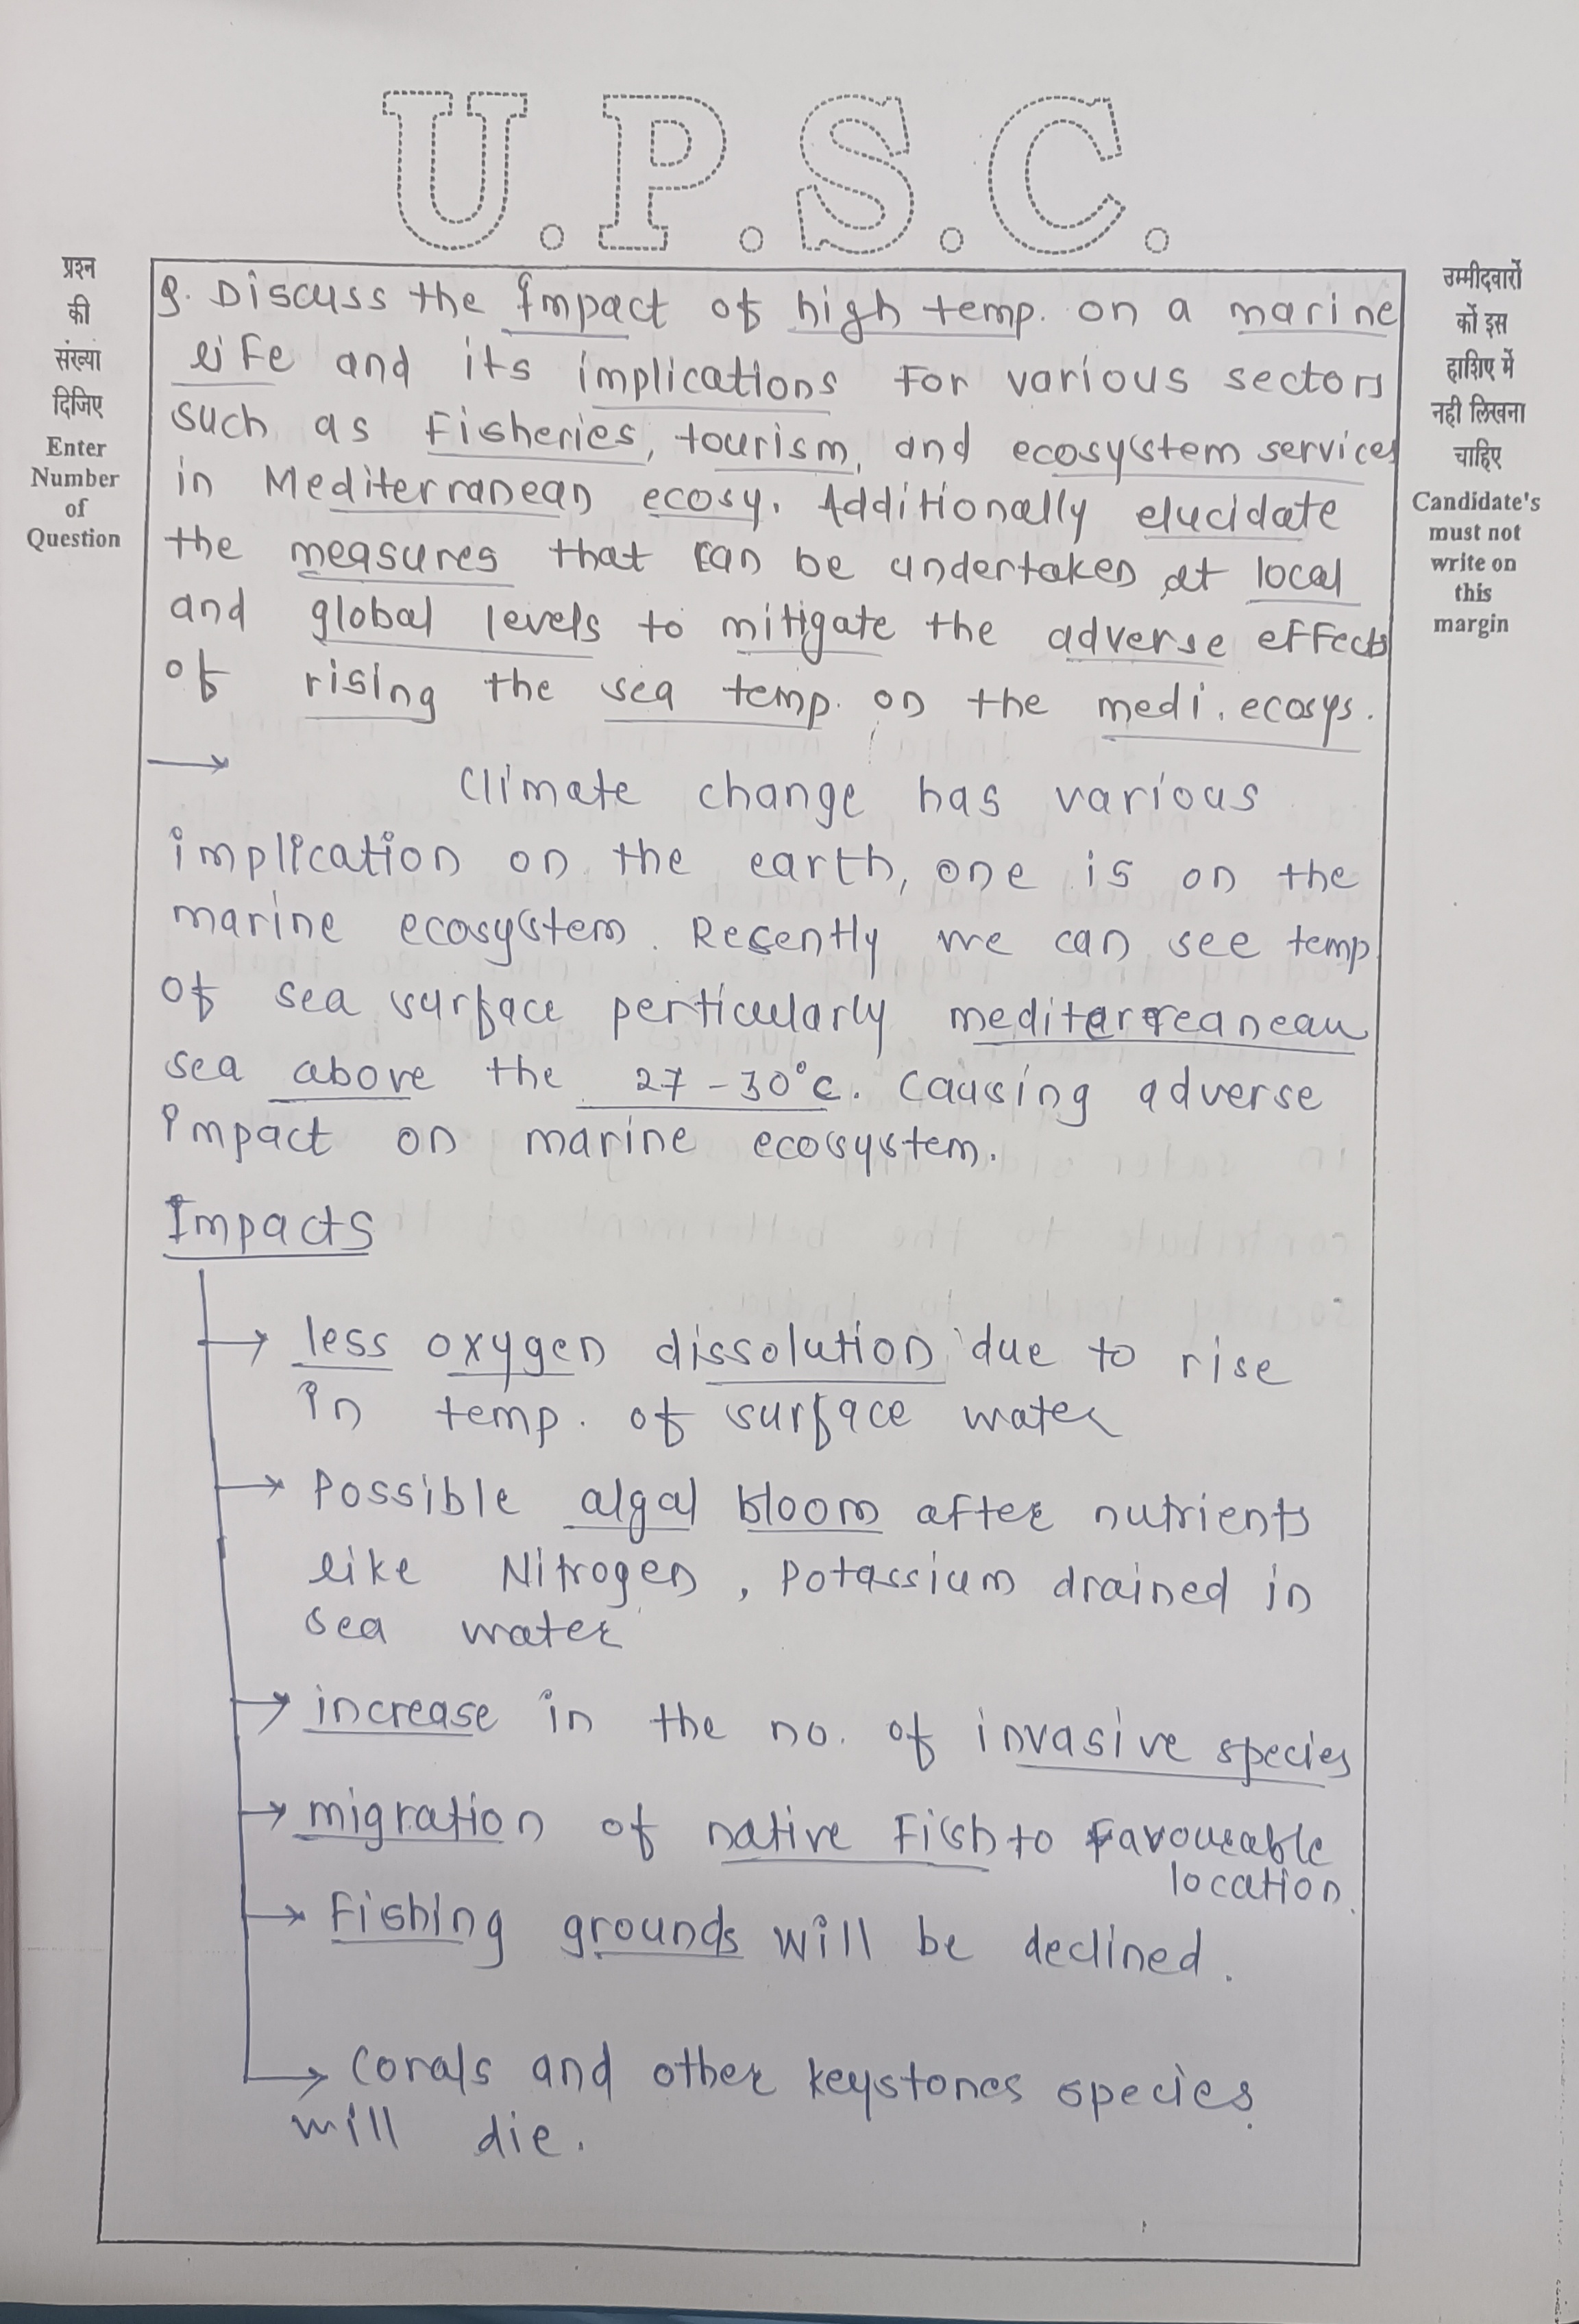 U.P.S.C.
प्रश्न
की
संख्या
दिजिए
Enter
Number
of
Question
उम्मीदवारों
कों इस
हाशिए में
नही लिखना
चाहिए
Candidate's
must not
write on
this
margin
Q. Discuss the Impact of high temp. on a marine
life and its implications for various sectors
such as Fisheries, tourism, and ecosystem services
in Mediterranean ecosy. Additionally elucidate
the measures that can be undertaken at local
and global levels to mitigate the adverse effects
of rising the sea temp. on the medi. ecosys.
→ Climate change has various
implication on the earth, one is on the
marine ecosystem. Recently we can see temp
of sea surface perticularly mediterreanean
sea above the 27-30°c. Causing adverse
Impact on marine ecosystem.
Impacts
→ less oxygen dissolution due to rise
in temp. of surface water
→ Possible algal bloom after nutrients
like Nitrogen, Potassium drained in
sea water
→ increase in the no. of invasive species
→ migration of native Fish to Favourable
location.
→ Fishing grounds will be declined.
→ Corals and other keystones species
will die.